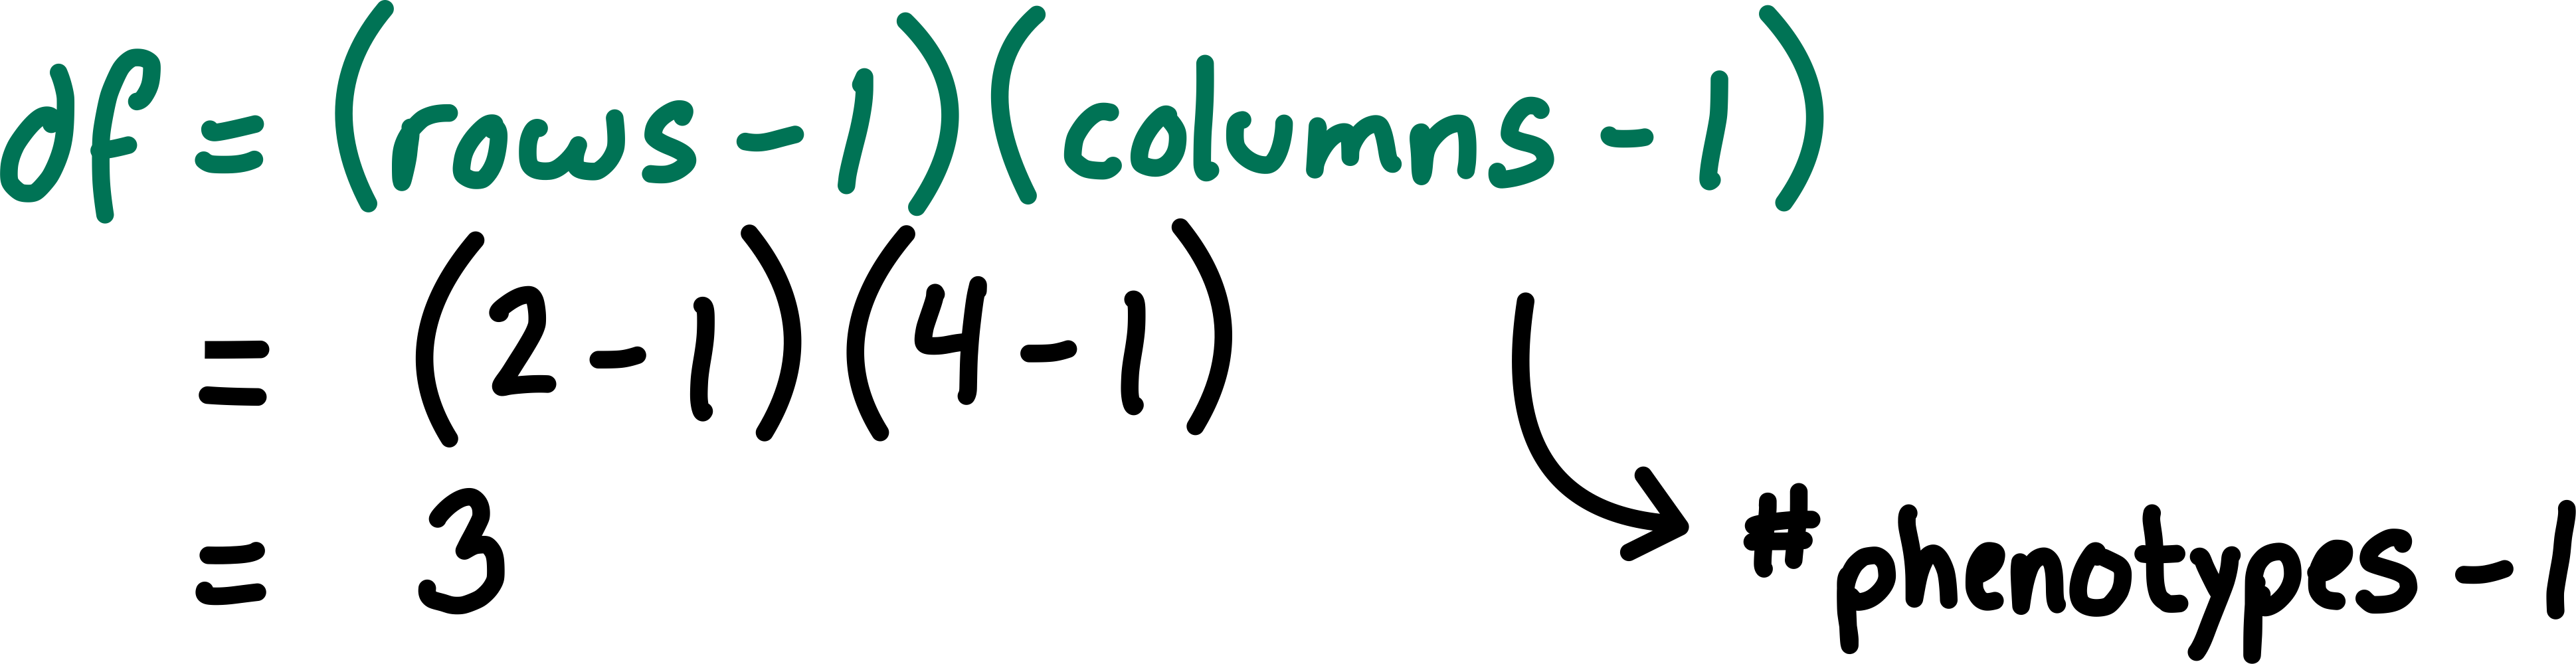 df = (rows - 1)(columns - 1)
= (2 - 1)(4 - 1)
= 3
# phenotypes - 1